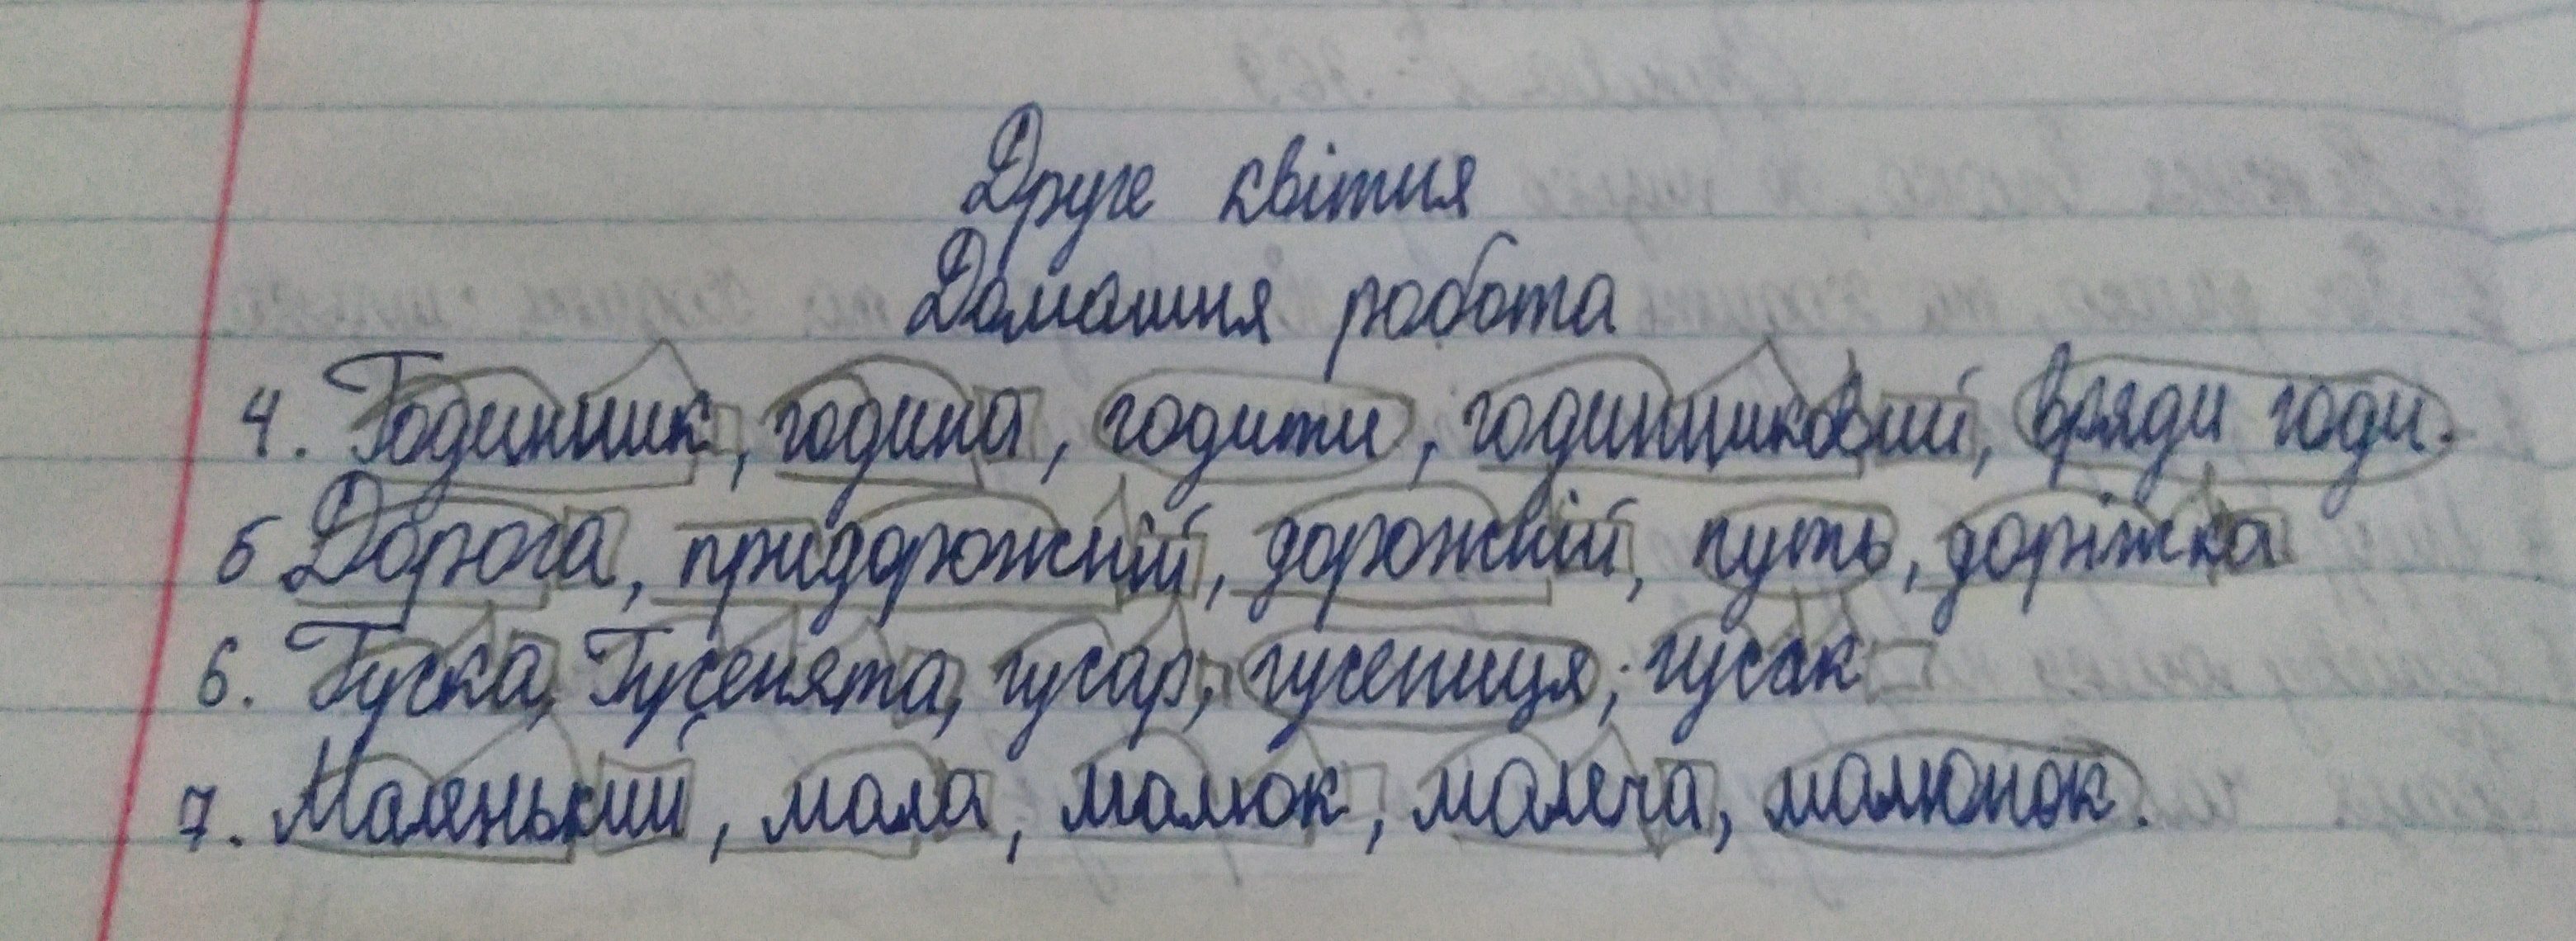 Друге квітня
Домашня робота
4. Годинник, година, годити, годинниковий, вряди годи.
5 Дорога, придорожній, дорожній, путь, доріжка
6. Гуска, Гусенята, гусар, гусениця, гусак
7. Маленький, мала, малюк, малеча, малюнок.